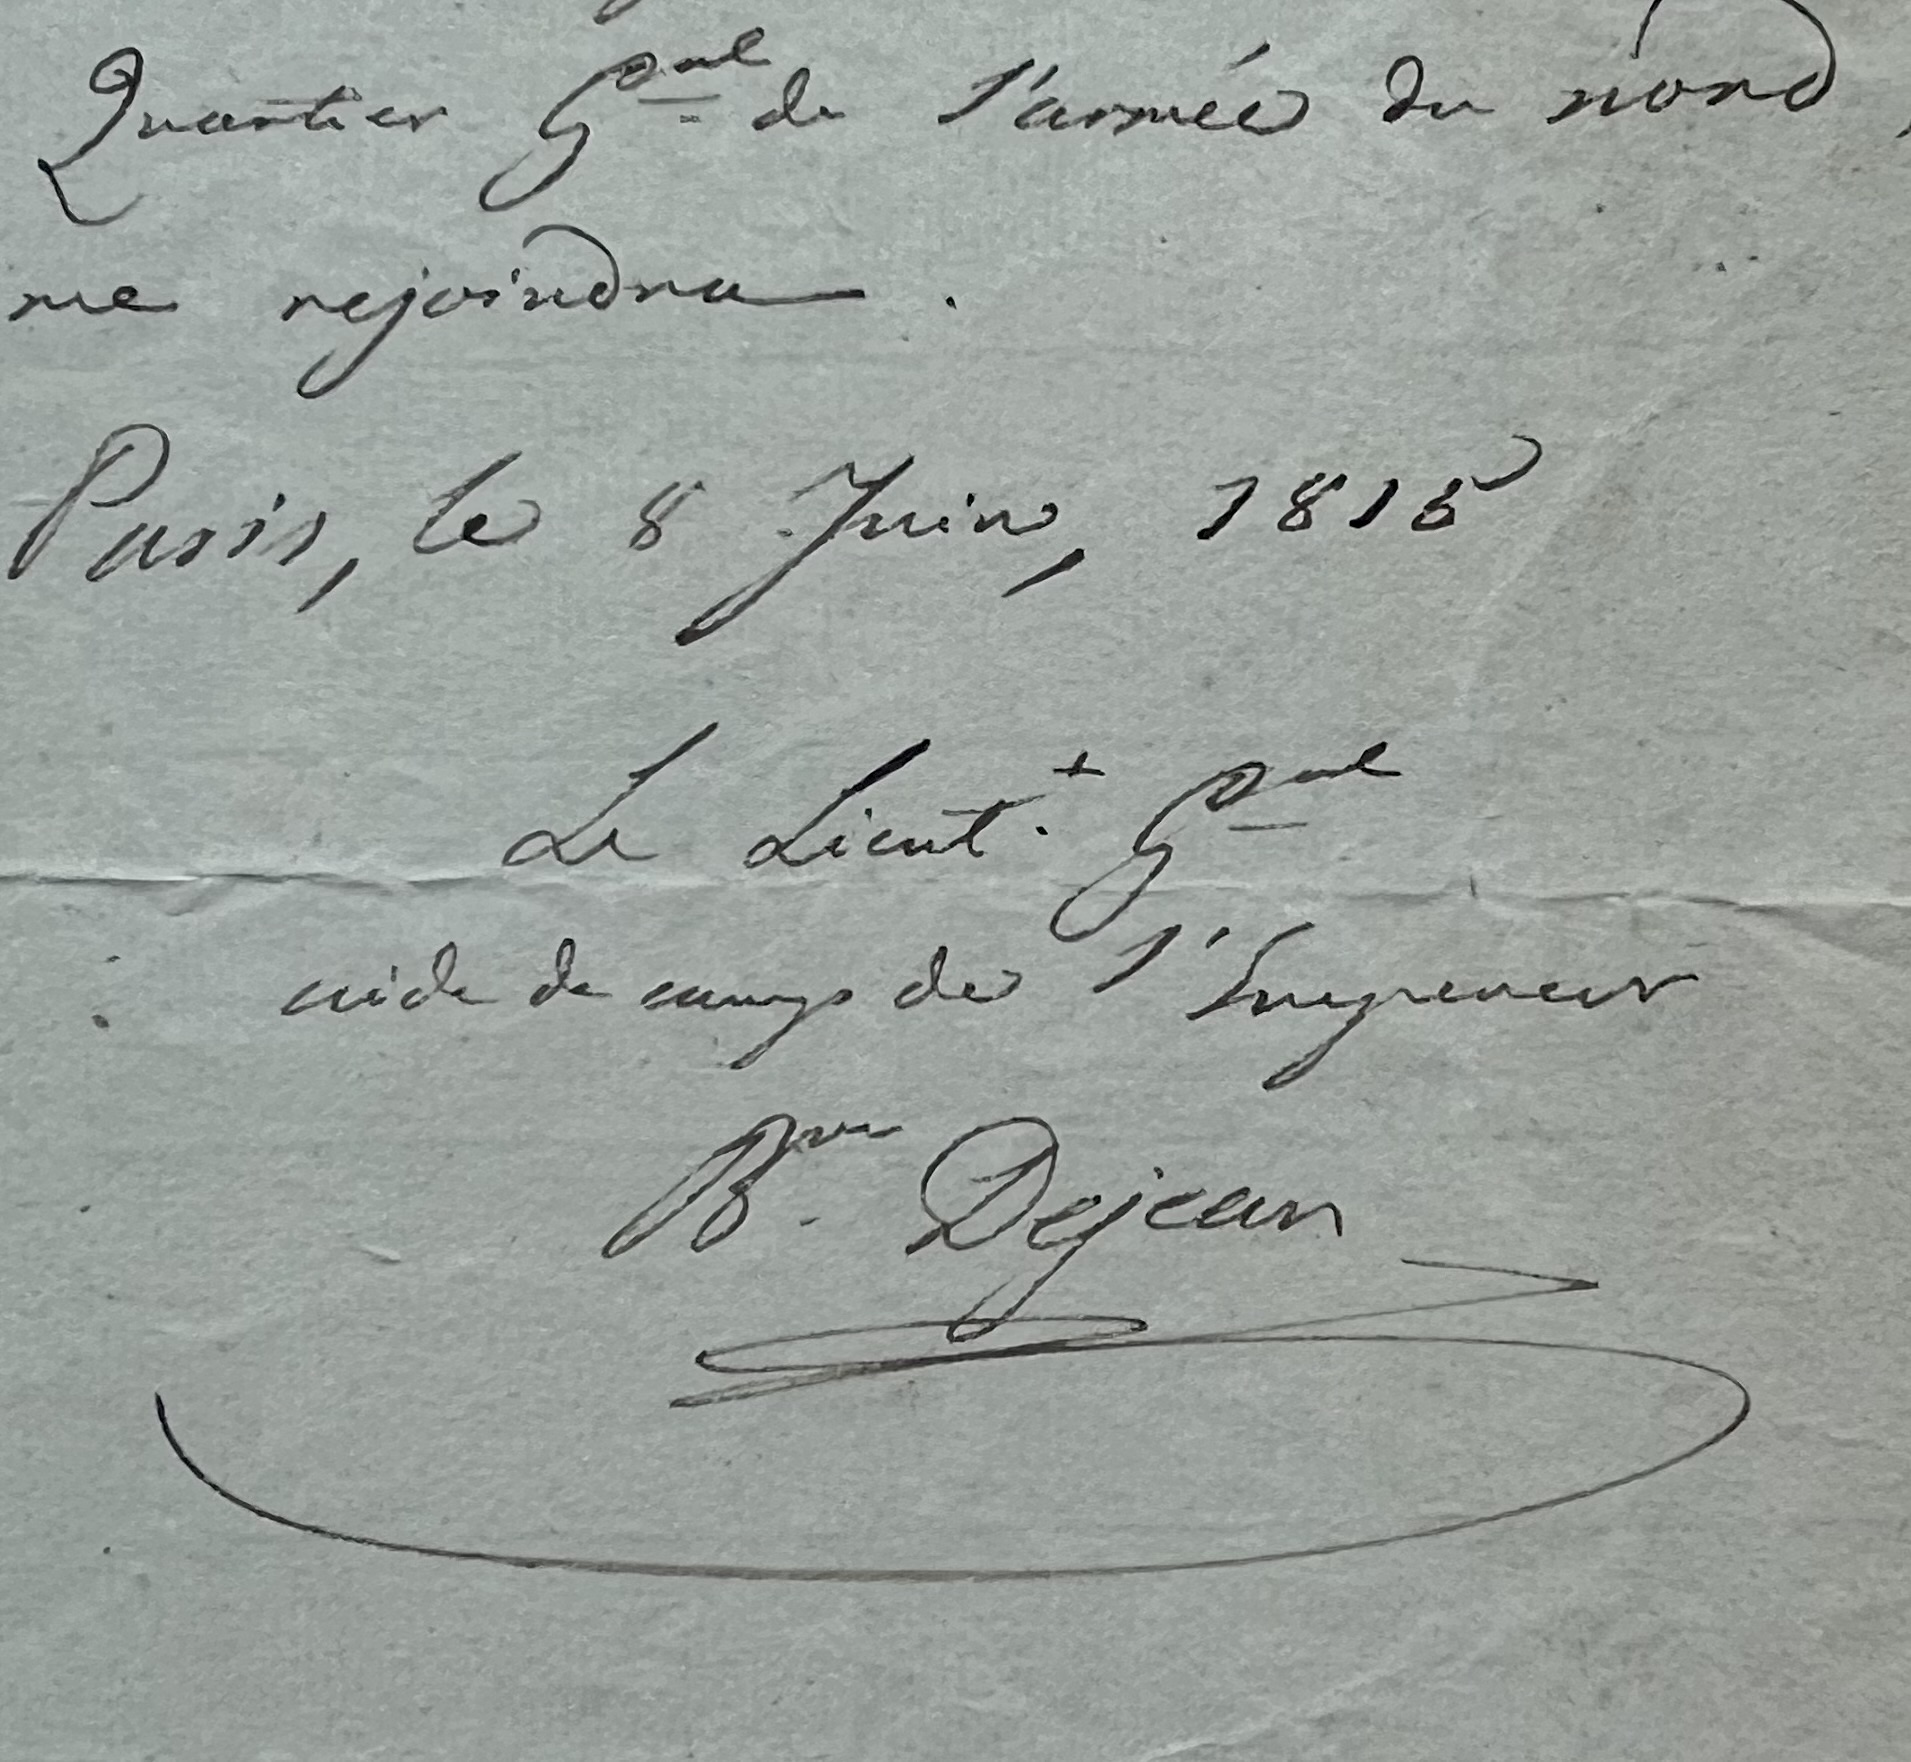 Quartier Gral de l'armée du nord,
me rejoindre.
Paris, le 8 Juin, 1815
Le Lieutt. Gral
aide de camp de l'Empereur
Bon. Dejean